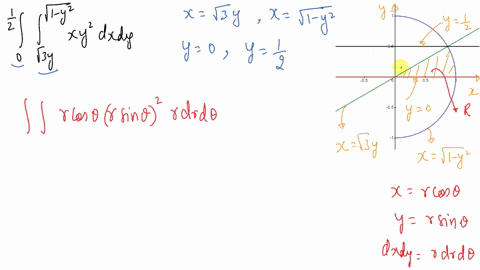 ∫₀^{1/2} ∫_{√3y}^{√1-y²} xy² dxdy
x = √3y , x = √1-y²
y = 0 , y = 1/2
∫∫ rcosθ (rsinθ)² rdrdθ
y
y = 1/2
-0.5
0.5
x
-0.5
-1
y = 0
R
x = √3y
x = √1-y²
x = rcosθ
y = rsinθ
dxdy = rdrdθ